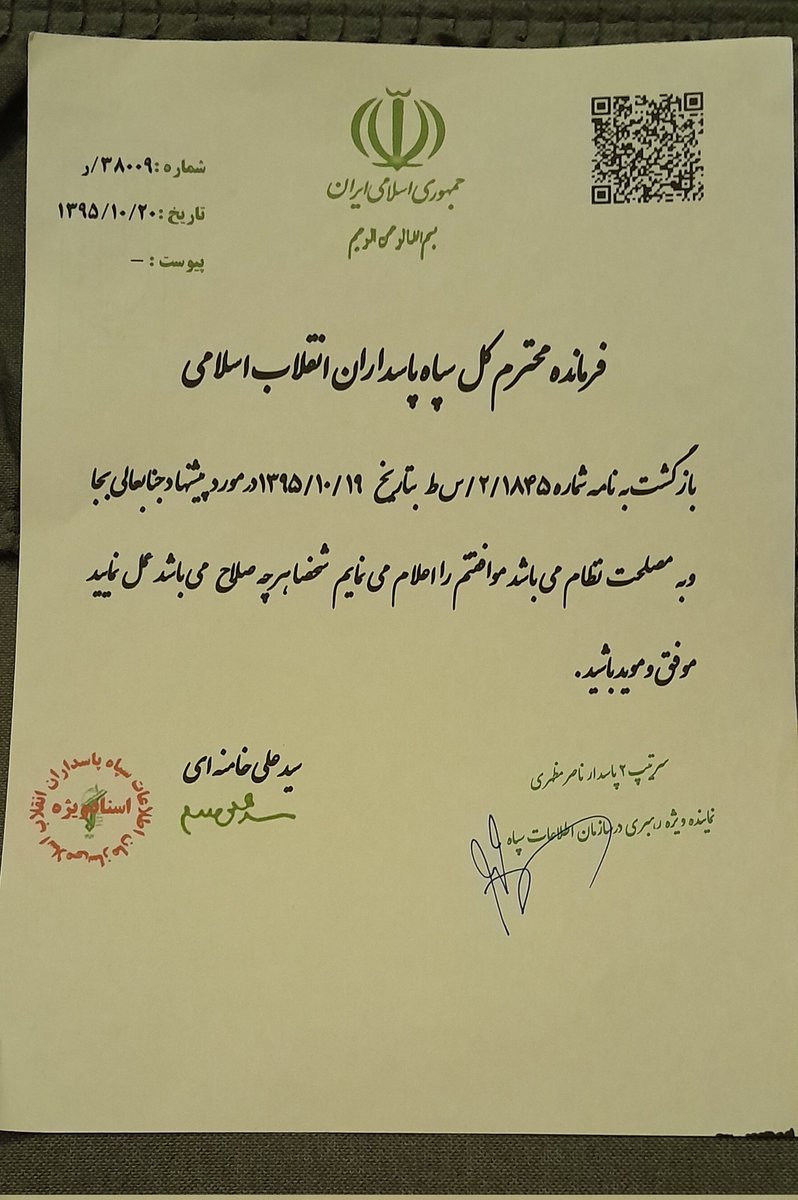 جمهوری اسلامی ایران
بسم الله الرحمن الرحیم
شماره :۳۸۰۰۹/ر
تاریخ :۱۳۹۵/۱۰/۲۰
پیوست : –
فرمانده محترم کل سپاه پاسداران انقلاب اسلامی
بازگشت به نامه شماره ۲/۱۸۴۵/س ط بتاریخ ۱۳۹۵/۱۰/۱۹ در مورد پیشنهاد جنابعالی بجا
وبه مصلحت نظام می باشد موافقتم را اعلام می نمایم شخصا هرچه صلاح می باشد عمل نمایید
موفق و موید باشید.
سرتیپ ۲ پاسدار ناصر مظهری
نماینده ویژه رهبری در سازمان اطلاعات سپاه
سید علی خامنه ای
سازمان اطلاعات سپاه پاسداران انقلاب
اسناد ویژه